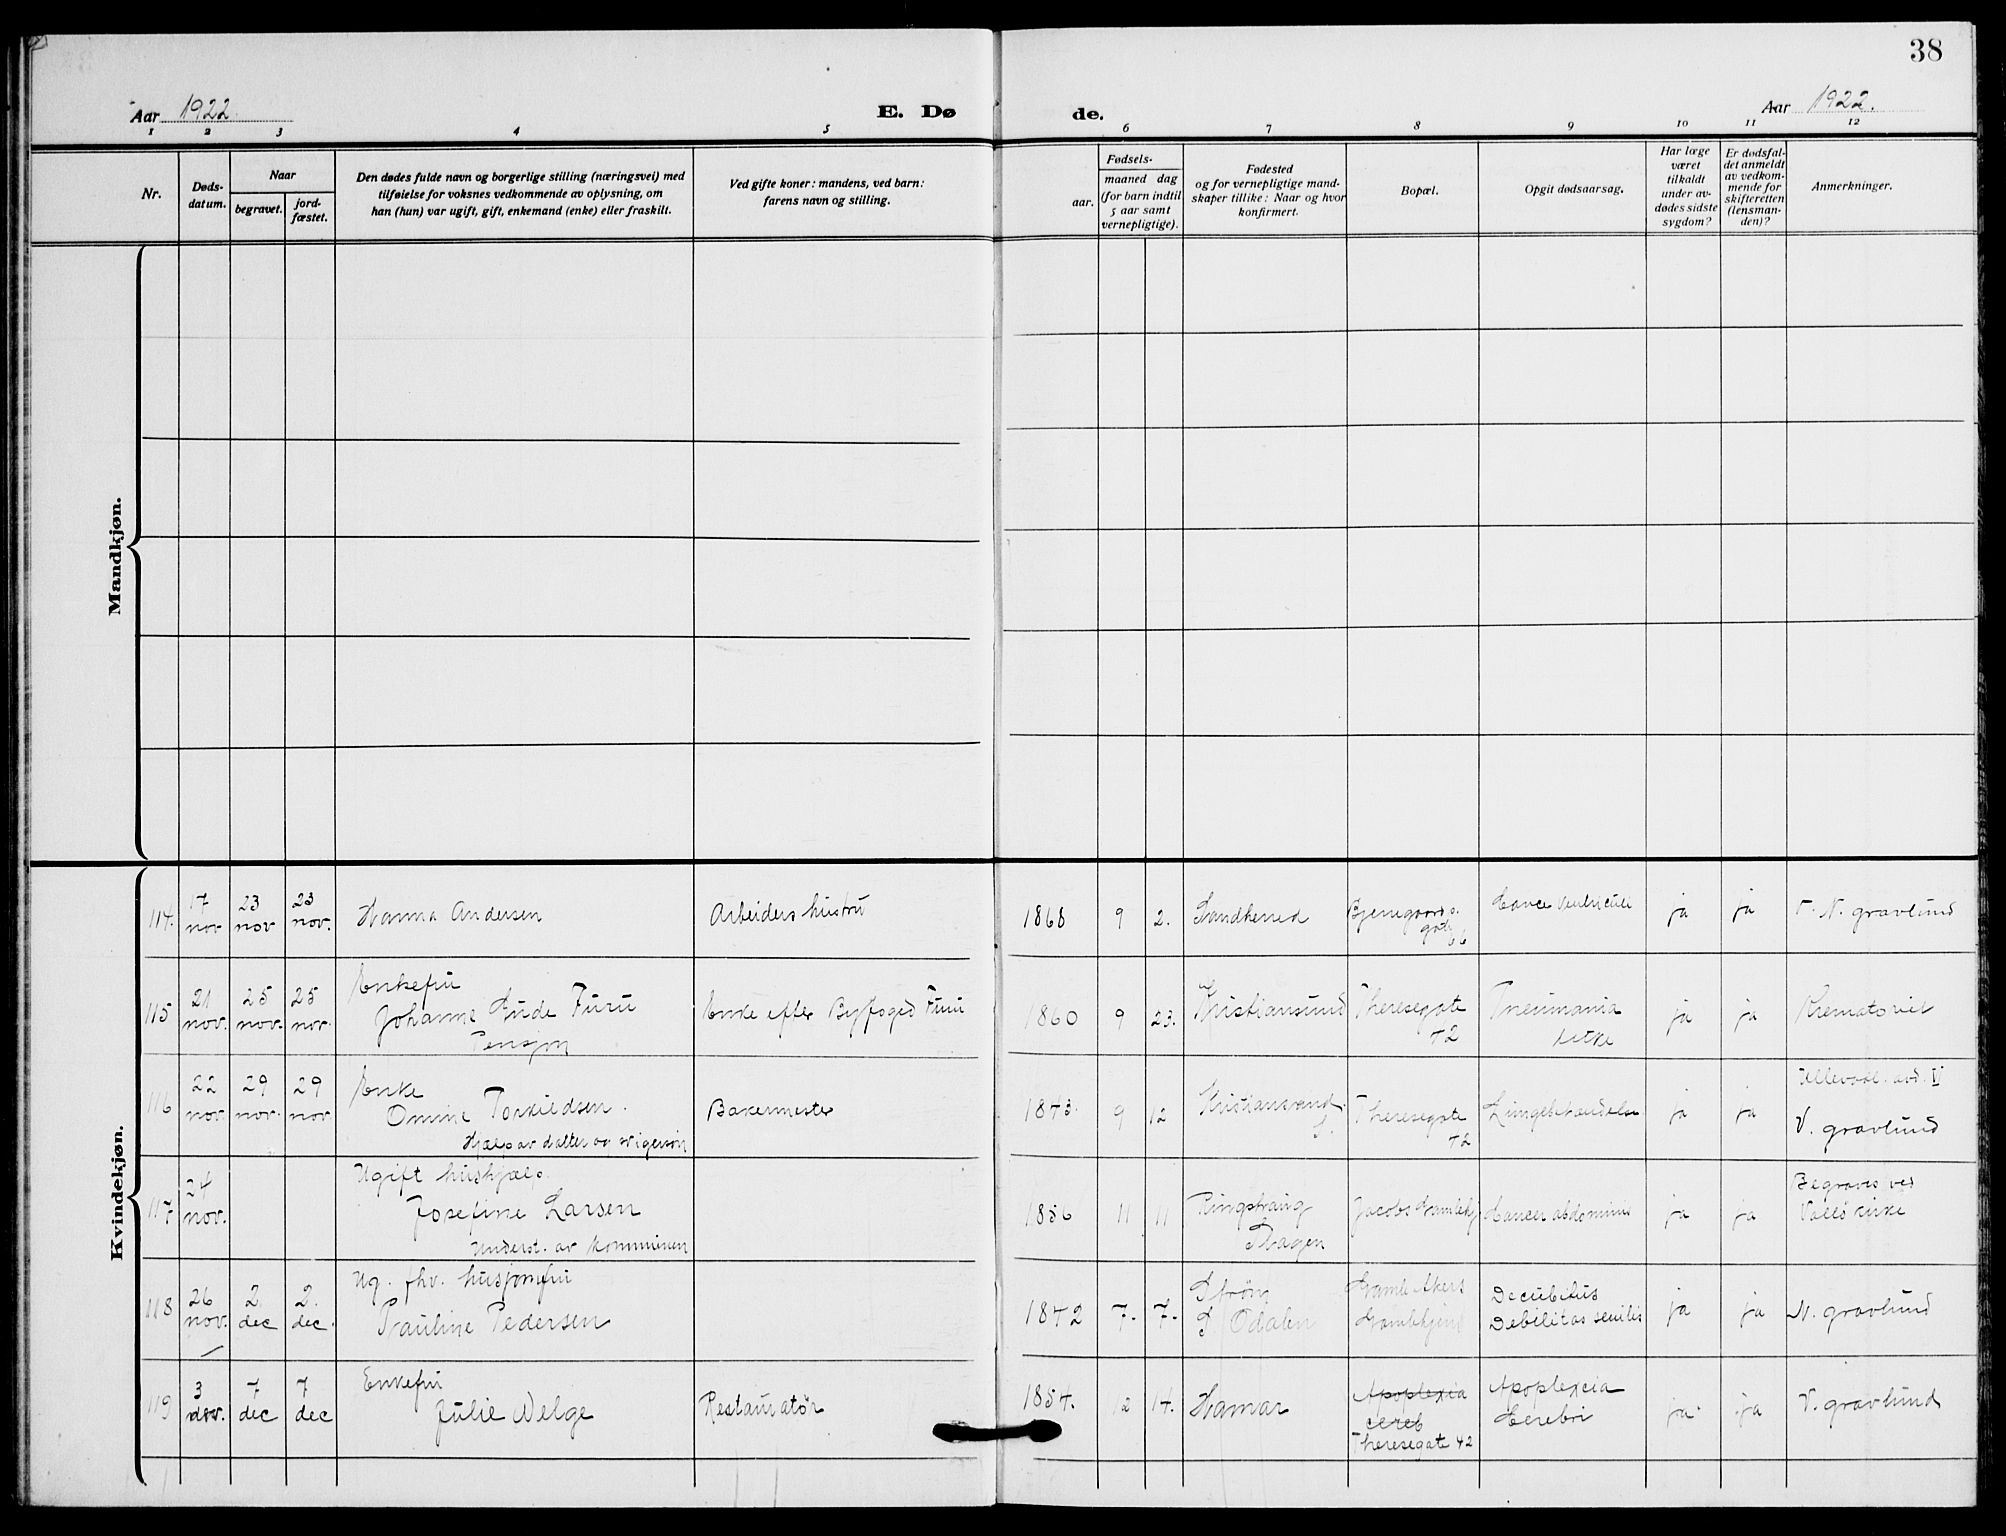 38
Aar 1922.
E. Dø
de.
Aar 1922.
1 2 3 4 5 6 7 8 9 10 11 12
Nr.
Døds-
datum.
Naar
begravet.
jord-
fæstet.
Den dødes fulde navn og borgerlige stilling (næringsvei) med
tilføielse for voksnes vedkommende av oplysning, om
han (hun) var ugift, gift, enkemand (enke) eller fraskilt.
Ved gifte koner: mandens, ved barn:
farens navn og stilling.
Fødsels-
aar.
maaned dag
(for barn indtil
5 aar samt
vernepligtige).
Fødested
og for vernepligtige mand-
skaper tillike: Naar og hvor
konfirmert.
Bopæl.
Opgit dødsaarsag.
Har læge
været
tilkaldt
under av-
dødes sidste
sygdom?
Er dødsfal-
det anmeldt
av vedkom-
mende for
skifteretten
(lensman-
den)?
Anmerkninger.
Mandkjøn.
Kvindekjøn.
114. 17 nov 23 nov 23 nov.
Hanna Andersen
Arbeiders hustru
1868 9 2.
Sandhered
66
Cancer Ventriculi
ja ja
V. N. gravlund
115 21 nov. 25 nov. 25 nov.
Enkefru
Johanne Aude Furu
Pensjon
Enke efter Byfoged Furu
1860 9 23.
Kristiansund
Theresegate
42
Pneumonia
ja ja
Krematoriet
116 22 nov 29 nov. 29 nov
Enke
Omine Torkildsen.
Hjælp av datter og svigersøn
Bakermester
1843. 9 12
Kristiansand
S.
Theresegate
42
Lungebetændelse
ja ja
Ullevaal. avd. V
V. gravlund
117 24 nov.
Ugift hushjælp.
Josefine Larsen
Underst. av kommunen
1856 11 11
Cancer abdominis
ja ja
Begraves ved
118 26 nov. 2. dec 2. dec.
Ug. fhv. husjomfru
Pauline Pedersen
1842 7. 7.
Strøm
S Odalen
Gamle Akers
Gamlehjem
Decubitus
Debilitas senilis
ja ja
N. gravlund
119 3 7 dec 7 dec
Enkefru
Julie Welge
Restauratør
1854. 12 14.
Hamar
Apoplexia
cereb
Theresegate 42
Apoplexia
Cerebri
ja ja
V. gravlund